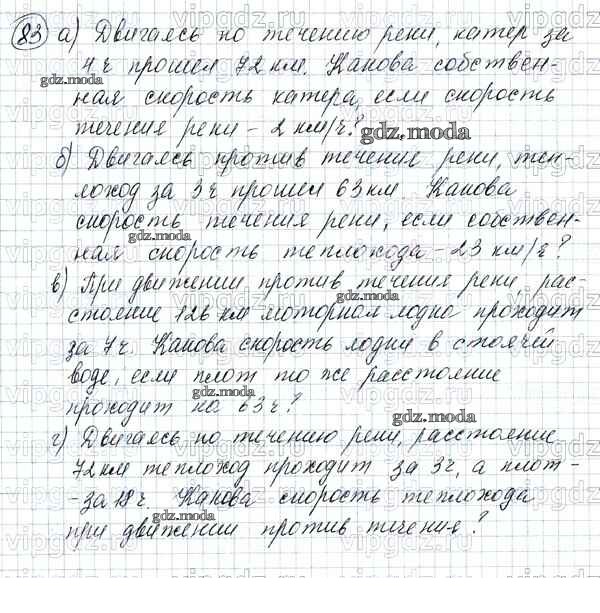 83 а) Двигаясь по течению реки, катер за
4 ч прошел 72 км. Какова собствен-
ная скорость катера, если скорость
течения реки - 2 км/ч?
б) Двигаясь против течение реки, теп-
лоход за 3ч прошел 63 км. Какова
скорость течения реки, если собствен-
ная скорость теплохода - 23 км/ч?
в) При движении против течения реки, рас-
стояние 126 км моторной лодка проходит
за 7 ч. Какова скорость лодки в стоячей
воде, если плот то же расстояние
проходит на 63 ч?
г) Двигаясь по течению реки, расстояние
72 км теплоход проходит за 3ч, а плот-
-за 18 ч. Какова скорость теплохода
при движении против течения?
gdz.moda
gdz.moda
gdz.moda
gdz.moda
gdz.moda
gdz.moda
gdz.moda